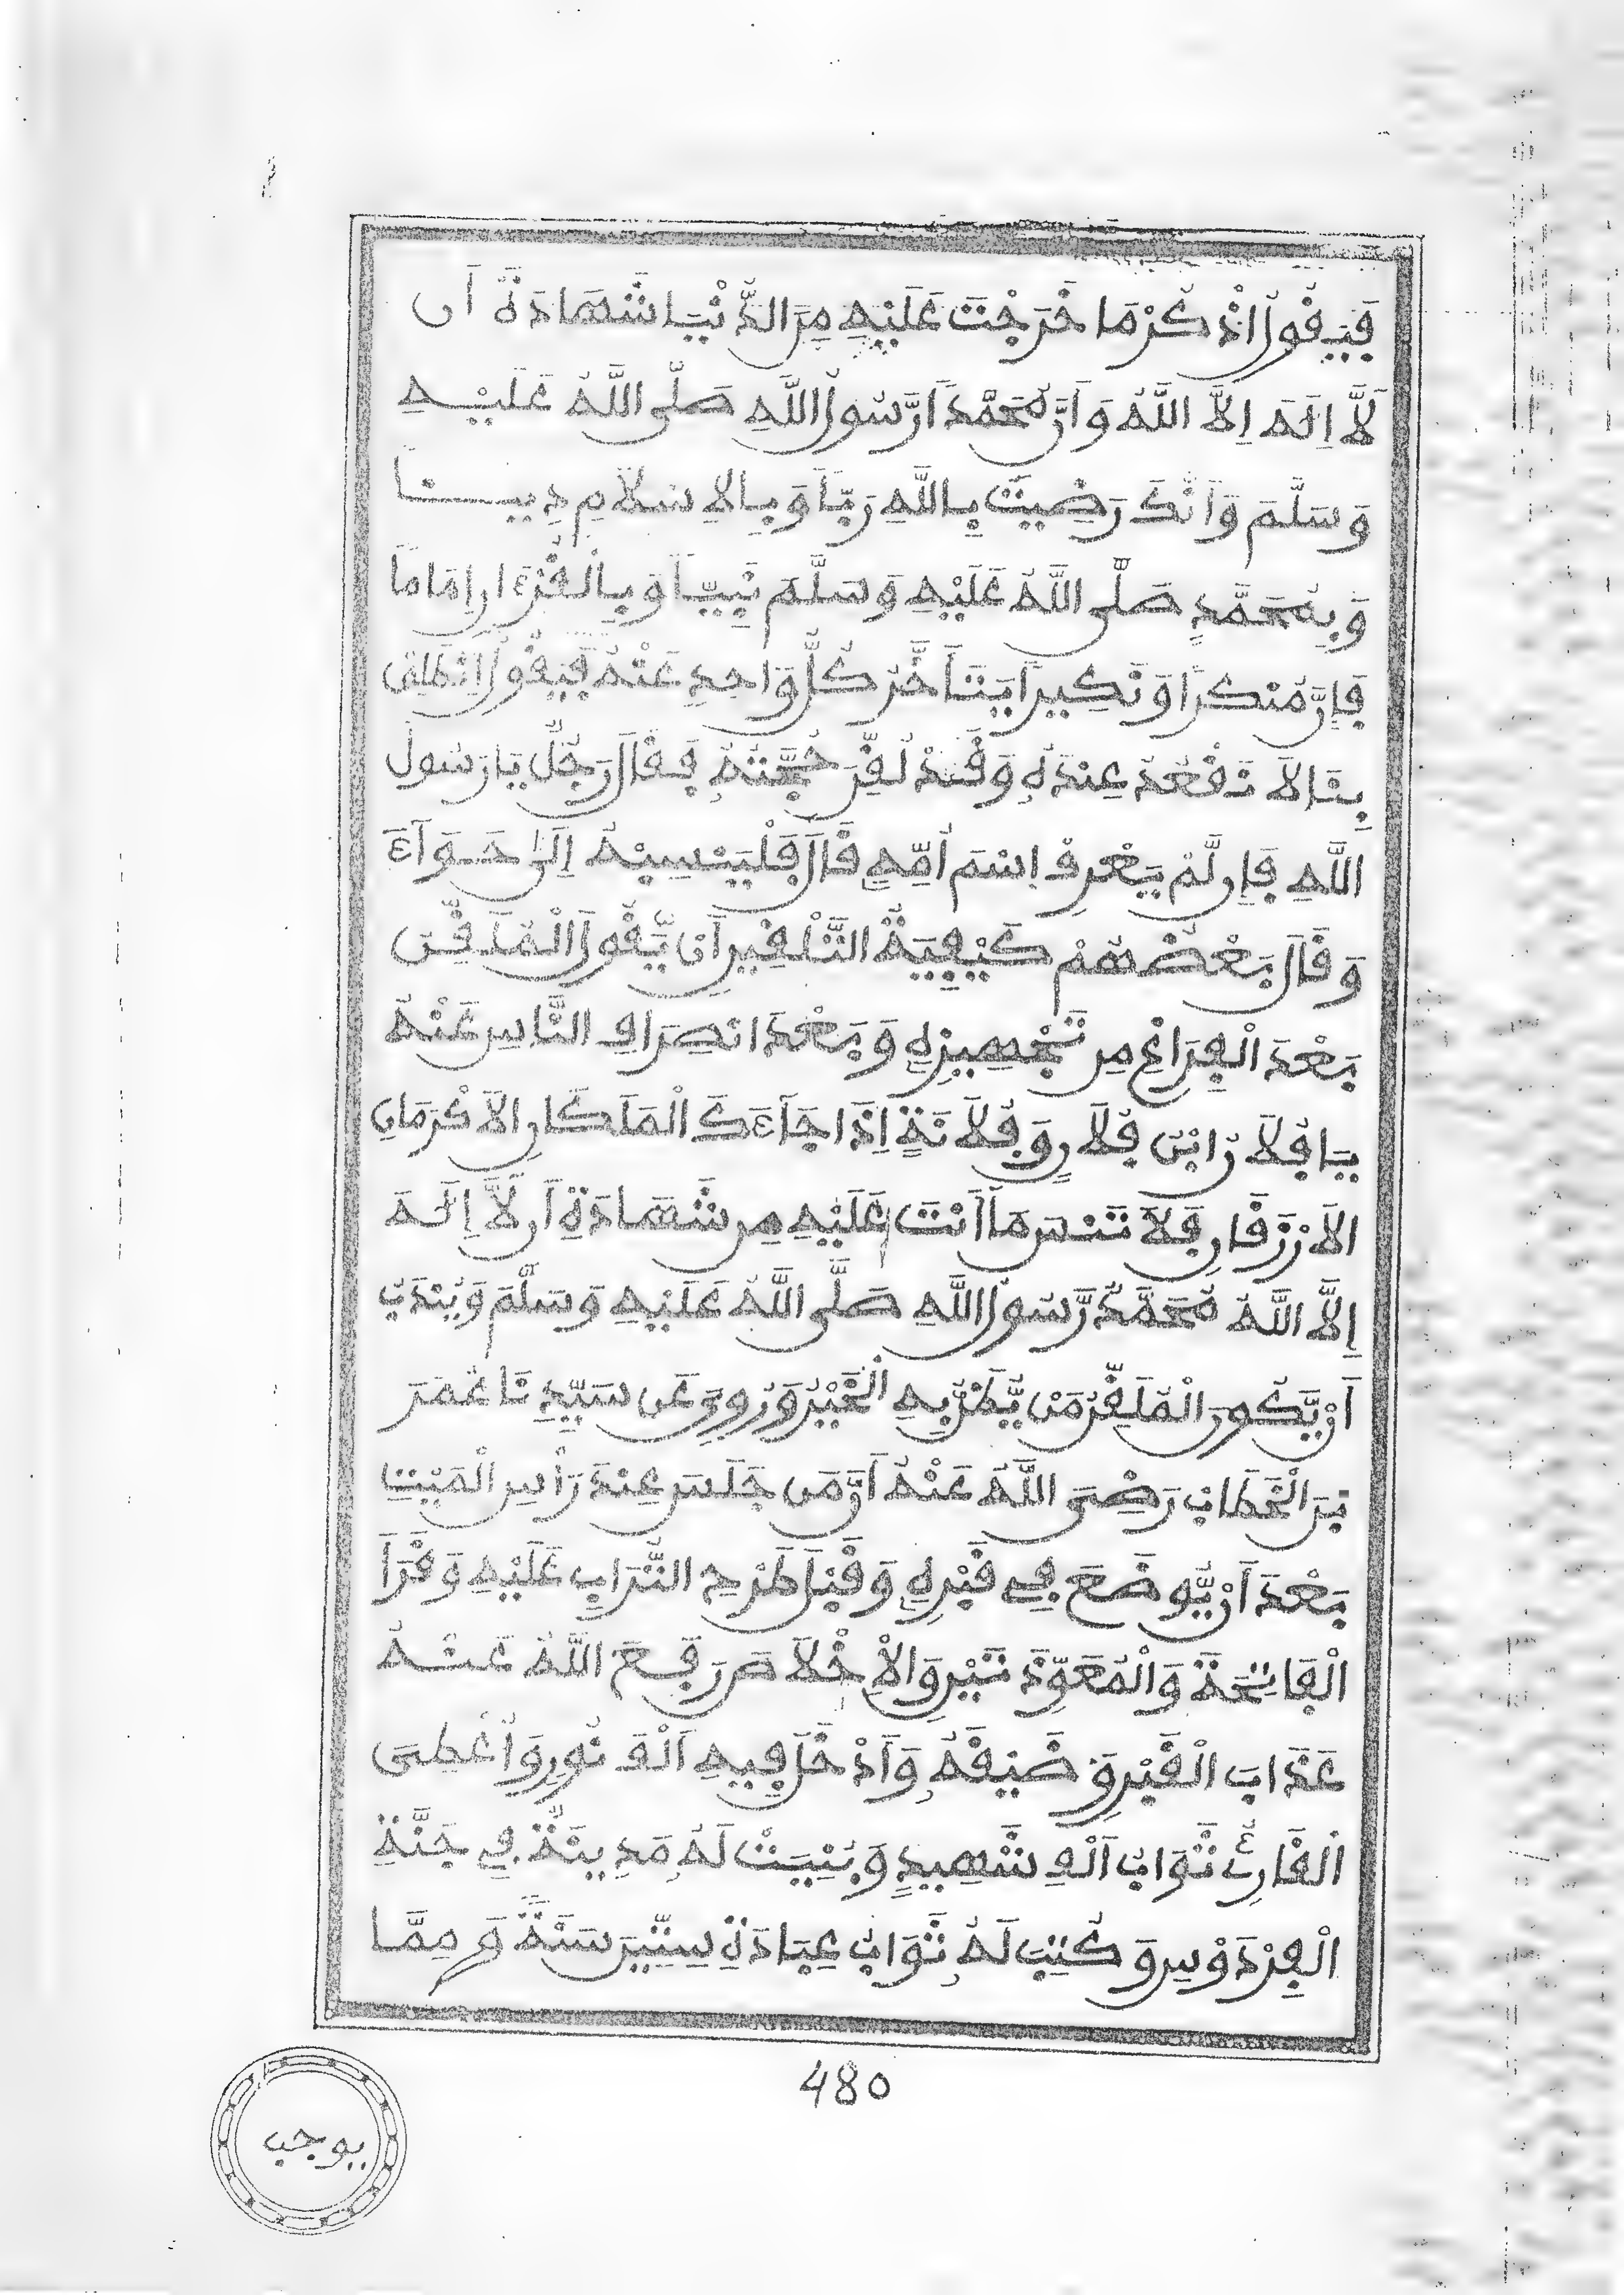 فَيَقُولُ اذْكُرْ مَا خَرَجْتَ عَلَيْهِ مِنَ الدُّنْيَا شَهَادَةَ أَن
لَّا إِلَهَ إِلَّا اللَّهُ وَأَنَّ مُحَمَّدًا رَّسُولُ اللَّهِ صَلَّى اللَّهُ عَلَيْهِ
وَسَلَّمَ وَأَنَّكَ رَضِيتَ بِاللَّهِ رَبًّا وَبِالإِسْلَامِ دِينًا
وَبِمُحَمَّدٍ صَلَّى اللَّهُ عَلَيْهِ وَسَلَّمَ نَبِيًّا وَبِالْقُرْءَانِ إِمَامًا
فَإِنَّ مُنْكَرًا وَنَكِيرًا يَتَأَخَّرُ كُلُّ وَاحِدٍ عَنْهُ فَيَقُولُ انْطَلِقْ
بِنَا لَا نَقْعُدُ عِنْدَهُ وَقَدْ لُقِّنَ حُجَّتَهُ فَقَالَ رَجُلٌ يَا رَسُولَ
اللَّهِ فَإِن لَّمْ يَعْرِفْ اِسْمَ أُمِّهِ قَالَ فَلْيَنْسِبْهُ إِلَى حَوَّآءَ
وَقَالَ بَعْضُهُمْ كَيْفِيَةُ التَّلْقِينِ أَنْ يَّقُولَ الْمُلَقِّنُ
بَعْدَ الْفِرَاغِ مِن تَجْهِيزِهِ وَبَعْدَ انصِرَافِ النَّاسِ عَنْهُ
يَا فُلَانُ ابْنُ فُلَانٍ وَفُلَانَةٍ إِذَا جَآءَكَ الْمَلَكَانِ الأَكْرَمَانِ
الأَزْرَقَانِ فَلَا تَنْسَ مَا أَنْتَ عَلَيْهِ مِن شَهَادَةِ أَن لَّا إِلَهَ
إِلَّا اللَّهُ مُحَمَّدٌ رَّسُولُ اللَّهِ صَلَّى اللَّهُ عَلَيْهِ وَسَلَّمَ وَيُنْدَبُ
أَنْ يَّكُونَ الْمُلَقِّنُ مَنْ يُّظَنُّ بِهِ الْخَيْرُ وَرُوِيَ عَن سَيِّدِنَا عُمَرَ
بْنِ الْخَطَّابِ رَضِيَ اللَّهُ عَنْهُ أَنَّ مَن جَلَسَ عِنْدَ رَأْسِ الْمَيِّتِ
بَعْدَ أَنْ يُّوضَعَ فِي قَبْرِهِ وَقَبْلَ طَرْحِ التُّرَابِ عَلَيْهِ وَقَرَأَ
الْفَاتِحَةَ وَالْمُعَوِّذَتَيْنِ وَالإِخْلَاصَ رَفَعَ اللَّهُ عَنْهُ
عَذَابَ الْقَبْرِ وَضَيْقَهُ وَأَدْخَلَ فِيهِ أَلْفَ نُورٍ وَأُعْطِيَ
الْقَارِئُ ثَوَابَ أَلْفِ شَهِيدٍ وَبُنِيَتْ لَهُ مَدِينَةٌ فِي جَنَّةِ
الْفِرْدَوْسِ وَكُتِبَ لَهُ ثَوَابُ عِبَادَةِ سِتِّينَ سَنَةً وَمِمَّا
480
يوجب